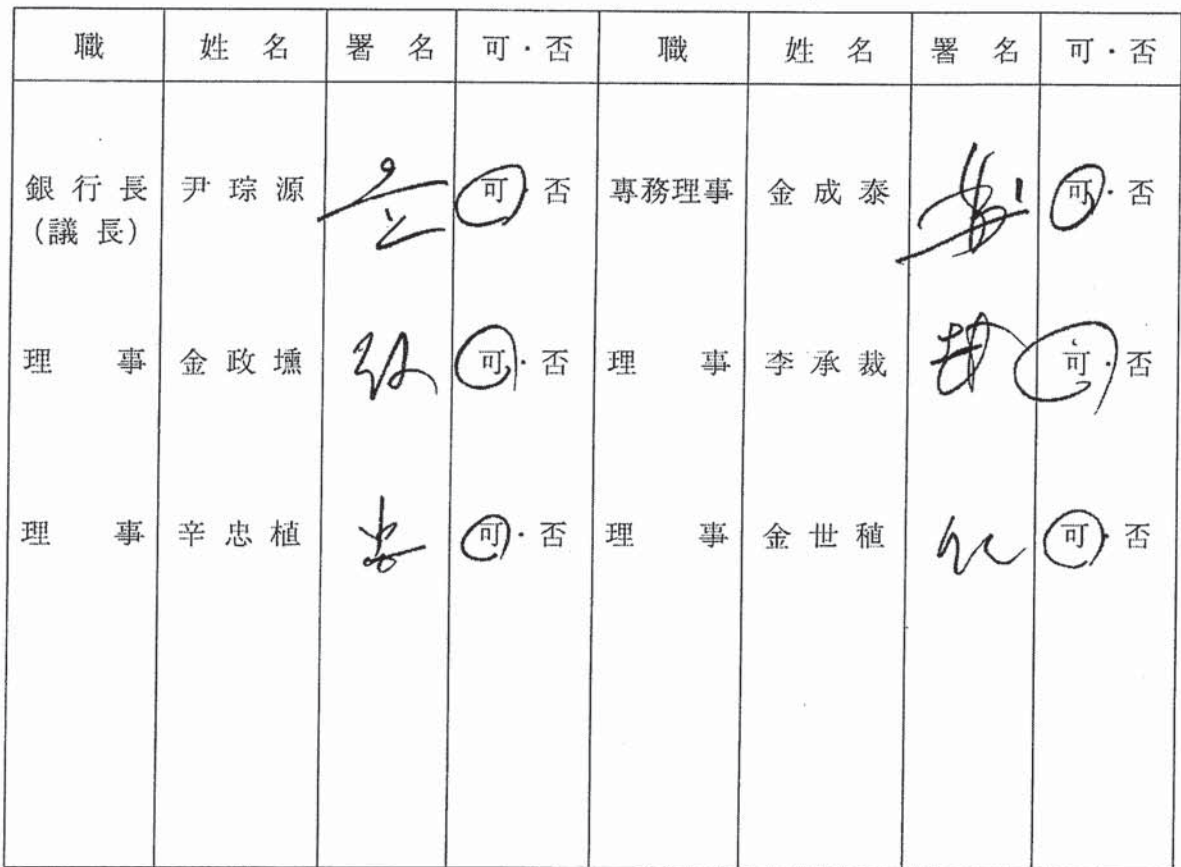 職 姓 名 署 名 可・否 職 姓 名 署 名 可・否
銀 行 長 尹 琮 源 可・否 專務理事 金 成 泰 可・否
(議 長)
理 事 金 政 壎 可・否 理 事 李 承 裁 可・否
理 事 辛 忠 植 可・否 理 事 金 世 稙 可・否